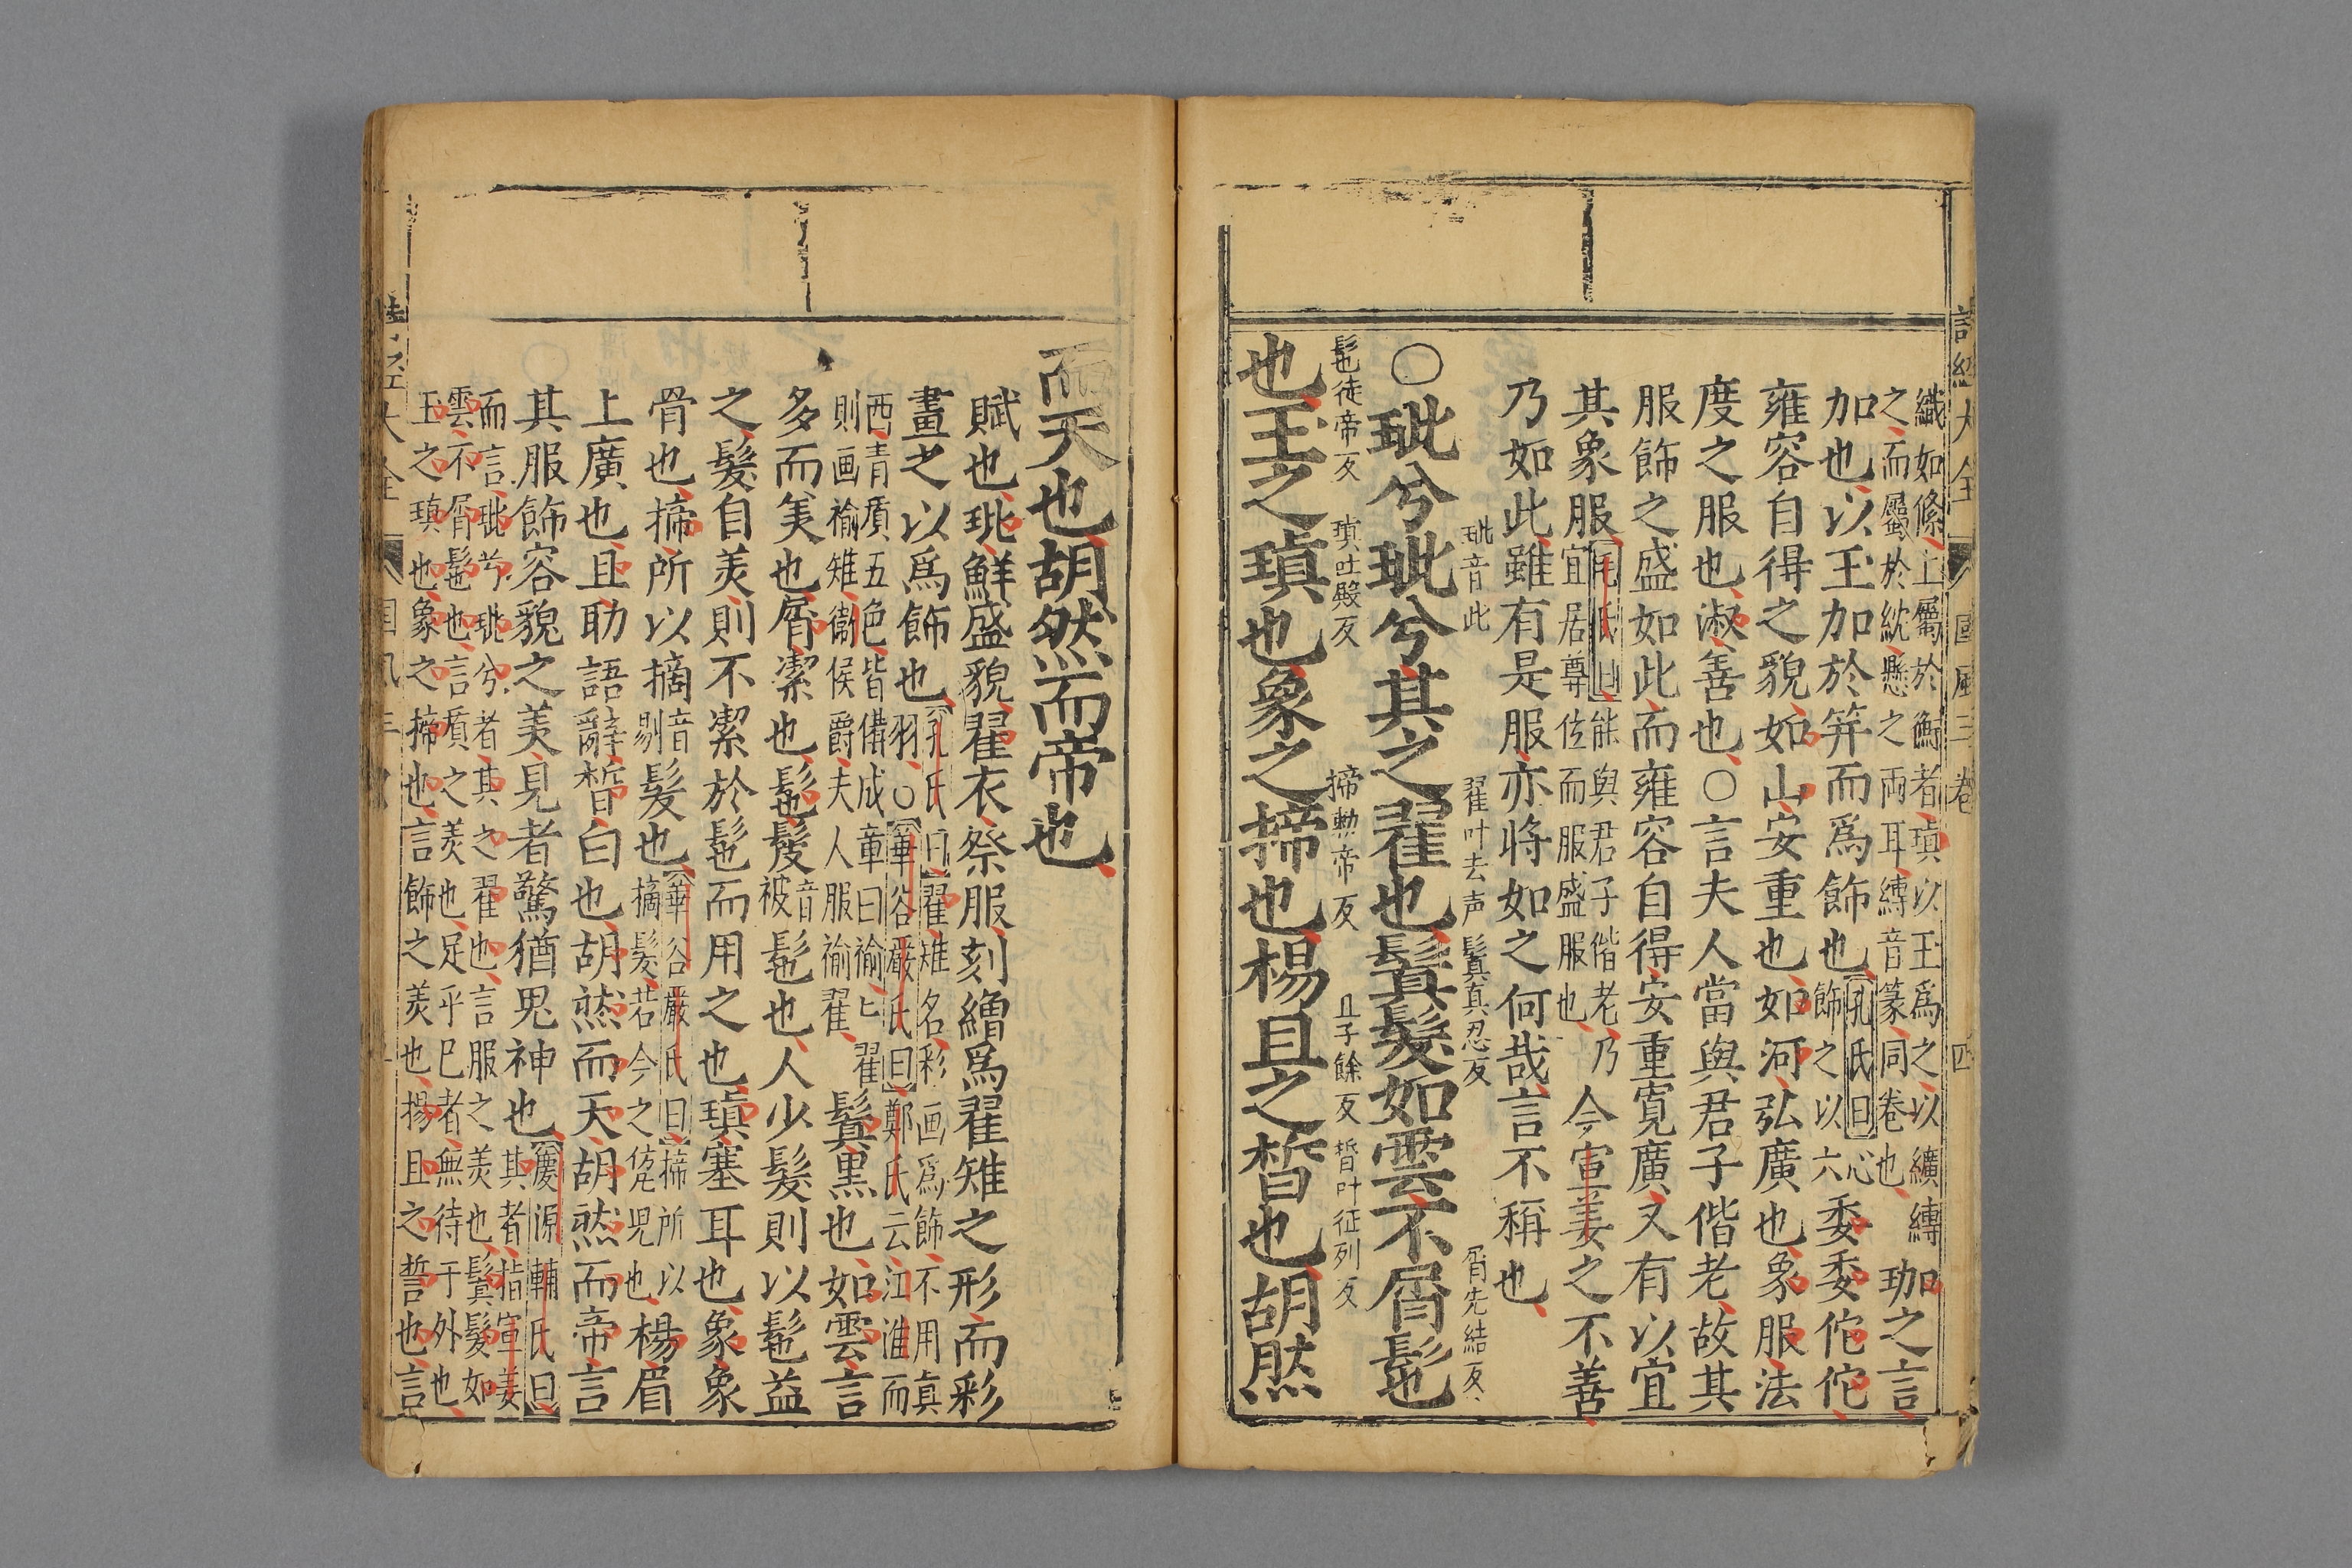 詩經大全 國風三卷 四
織如絛上屬於𩬆者瑱以玉爲之以纊縳
之而屬於紞懸之兩耳縳音篆同卷也
珈之言
加也以玉加於笄而爲飾也
孔氏曰
飾之以六
委委佗佗
雍容自得之貌如山安重也如河弘廣也象服法
度之服也淑善也○言夫人當與君子偕老故其
服飾之盛如此而雍容自得安重寬廣又有以宜
其象服
能與君子偕老乃
宜居尊位而服盛服也
今宣姜之不善
乃如此雖有是服亦將如之何哉言不稱也
玼音此 翟叶去声 鬒真忍反 屑先結反
○玼兮玼兮其之翟也鬒髮如雲不屑髢
髢徒帝反 瑱吐殿反 揥勅帝反 且子餘反 皙叶征列反
也玉之瑱也象之揥也楊且之皙也胡然
而天也胡然而帝也
賦也玼鮮盛貌翟衣祭服刻繒爲翟雉之形而彩
畫之以爲飾也
孔氏曰翟雉名彩画爲飾不用真
羽○華谷嚴氏曰鄭氏云江淮而
西青質五色皆備成章曰褕褕翟
則画褕雉衞侯爵夫人服褕翟
鬒黑也如雲言
多而美也屑潔也髢髲
音
被
髢也人少髮則以髢益
之髮自美則不潔於髢而用之也瑱塞耳也象象
骨也揥所以摘
音
剔
髮也
華谷嚴氏曰揥所以
摘髮若今之篦兒也
楊眉
上廣也且助語辭皙白也胡然而天胡然而帝言
其服飾容貌之美見者驚猶鬼神也
慶源輔氏曰
其者指宣姜
而言玼兮玼兮者其之翟也言服之美也鬒髮如
雲不屑髢也言質之美也足乎已者無待于外也
玉之瑱也象之揥也言飾之美也揚且之晳也言